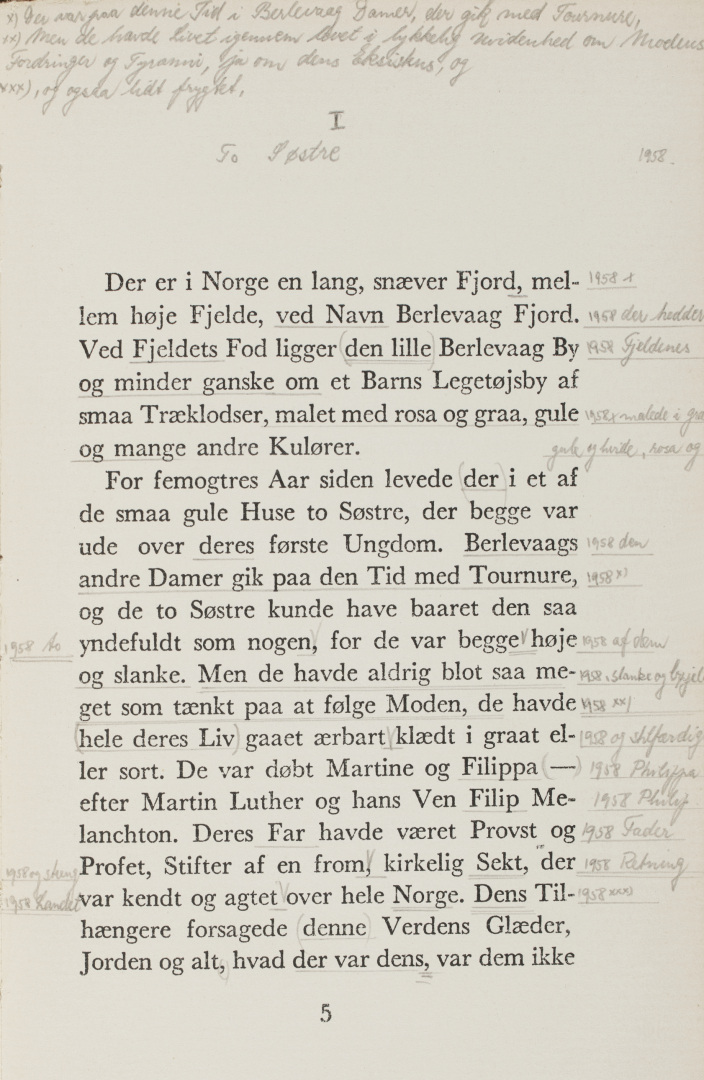 x) Der var paa denne Tid i Berlevaag Damer, der gik med Tournure,
xx) Men de havde livet igennem levet i lykkelig uvidenhed om Modens
Fordringer og Tyranni, ja om dens Eksistens, og
xxx), og ogsaa lidt frygtet,
I
To Søstre 1958.
Der er i Norge en lang, snæver Fjord, mel- 1958 x
lem høje Fjelde, ved Navn Berlevaag Fjord. 1958 der hedder
Ved Fjeldets Fod ligger (den lille) Berlevaag By 1958 Fjeldenes
og minder ganske om et Barns Legetøjsby af
smaa Træklodser, malet med rosa og graa, gule 1958 malede i gra
og mange andre Kulører. gule og hvide, rosa og
For femogtres Aar siden levede (der) i et af
de smaa gule Huse to Søstre, der begge var
ude over deres første Ungdom. Berlevaags 1958 den
andre Damer gik paa den Tid med Tournure, 1958 x)
og de to Søstre kunde have baaret den saa
1958 to yndefuldt som nogen, for de var begge høje 1958 af dem
og slanke. Men de havde aldrig blot saa me- 1958, slanke og
get som tænkt paa at følge Moden, de havde 1958 xx)
(hele deres Liv) gaaet ærbart klædt i graat el- 1958 og stilfærdig
ler sort. De var døbt Martine og Filippa (—) 1958 Philippa
efter Martin Luther og hans Ven Filip Me- 1958 Philip
lanchton. Deres Far havde været Provst og 1958 Fader
1958 og Profet, Stifter af en from, kirkelig Sekt, der 1958 Retning
1958 Landet var kendt og agtet over hele Norge. Dens Til- 1958 xxx)
hængere forsagede (denne) Verdens Glæder,
Jorden og alt, hvad der var dens, var dem ikke
5